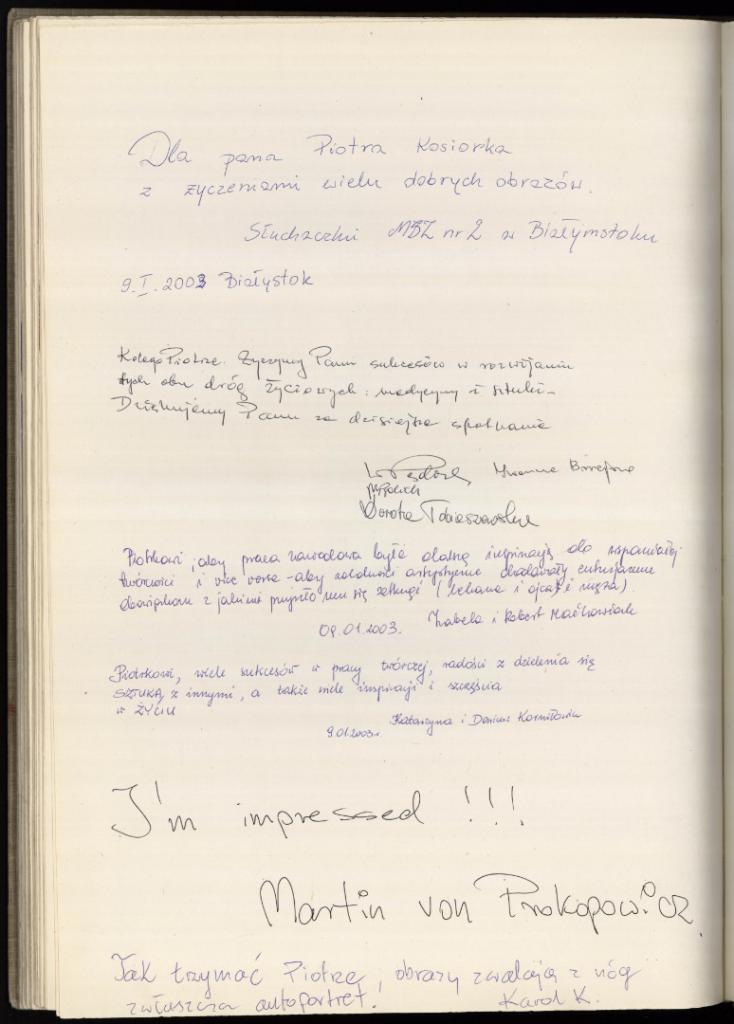 Dla pana Piotra Kosiorka
z życzeniami wielu dobrych obrazów.
Słuchaczki MSZ nr 2 w Białymstoku
9.I.2003 Białystok
Kolego Piotrze. Życzymy Panu sukcesów w rozwijaniu
tych obu dróg życiowych: medycyny i sztuki.
Dziękujemy Panu za dzisiejsze spotkanie
Dorota Tobiaszewska
Piotrkowi, aby praca zawodowa była dalszą inspiracją do wspaniałej
twórczości i vice versa - aby zdolności artystyczne dodawały entuzjazmu
obowiązkom z jakimi przyszło mu się zetknąć (lekarza i ojca i męża).
09.01.2003. Izabela i Robert Maćkowiak
Piotrkowi, wiele sukcesów w pracy twórczej, radości z dzielenia się
SZTUKĄ z innymi, a także wiele inspiracji i szczęścia
w ŻYCIU
9.01.2003r. Katarzyna i Dariusz
I'm impressed !!!
Martin von Prokopowicz
Tak trzymać Piotrze, obrazy zwalają z nóg
zwłaszcza autoportret. Karol K.